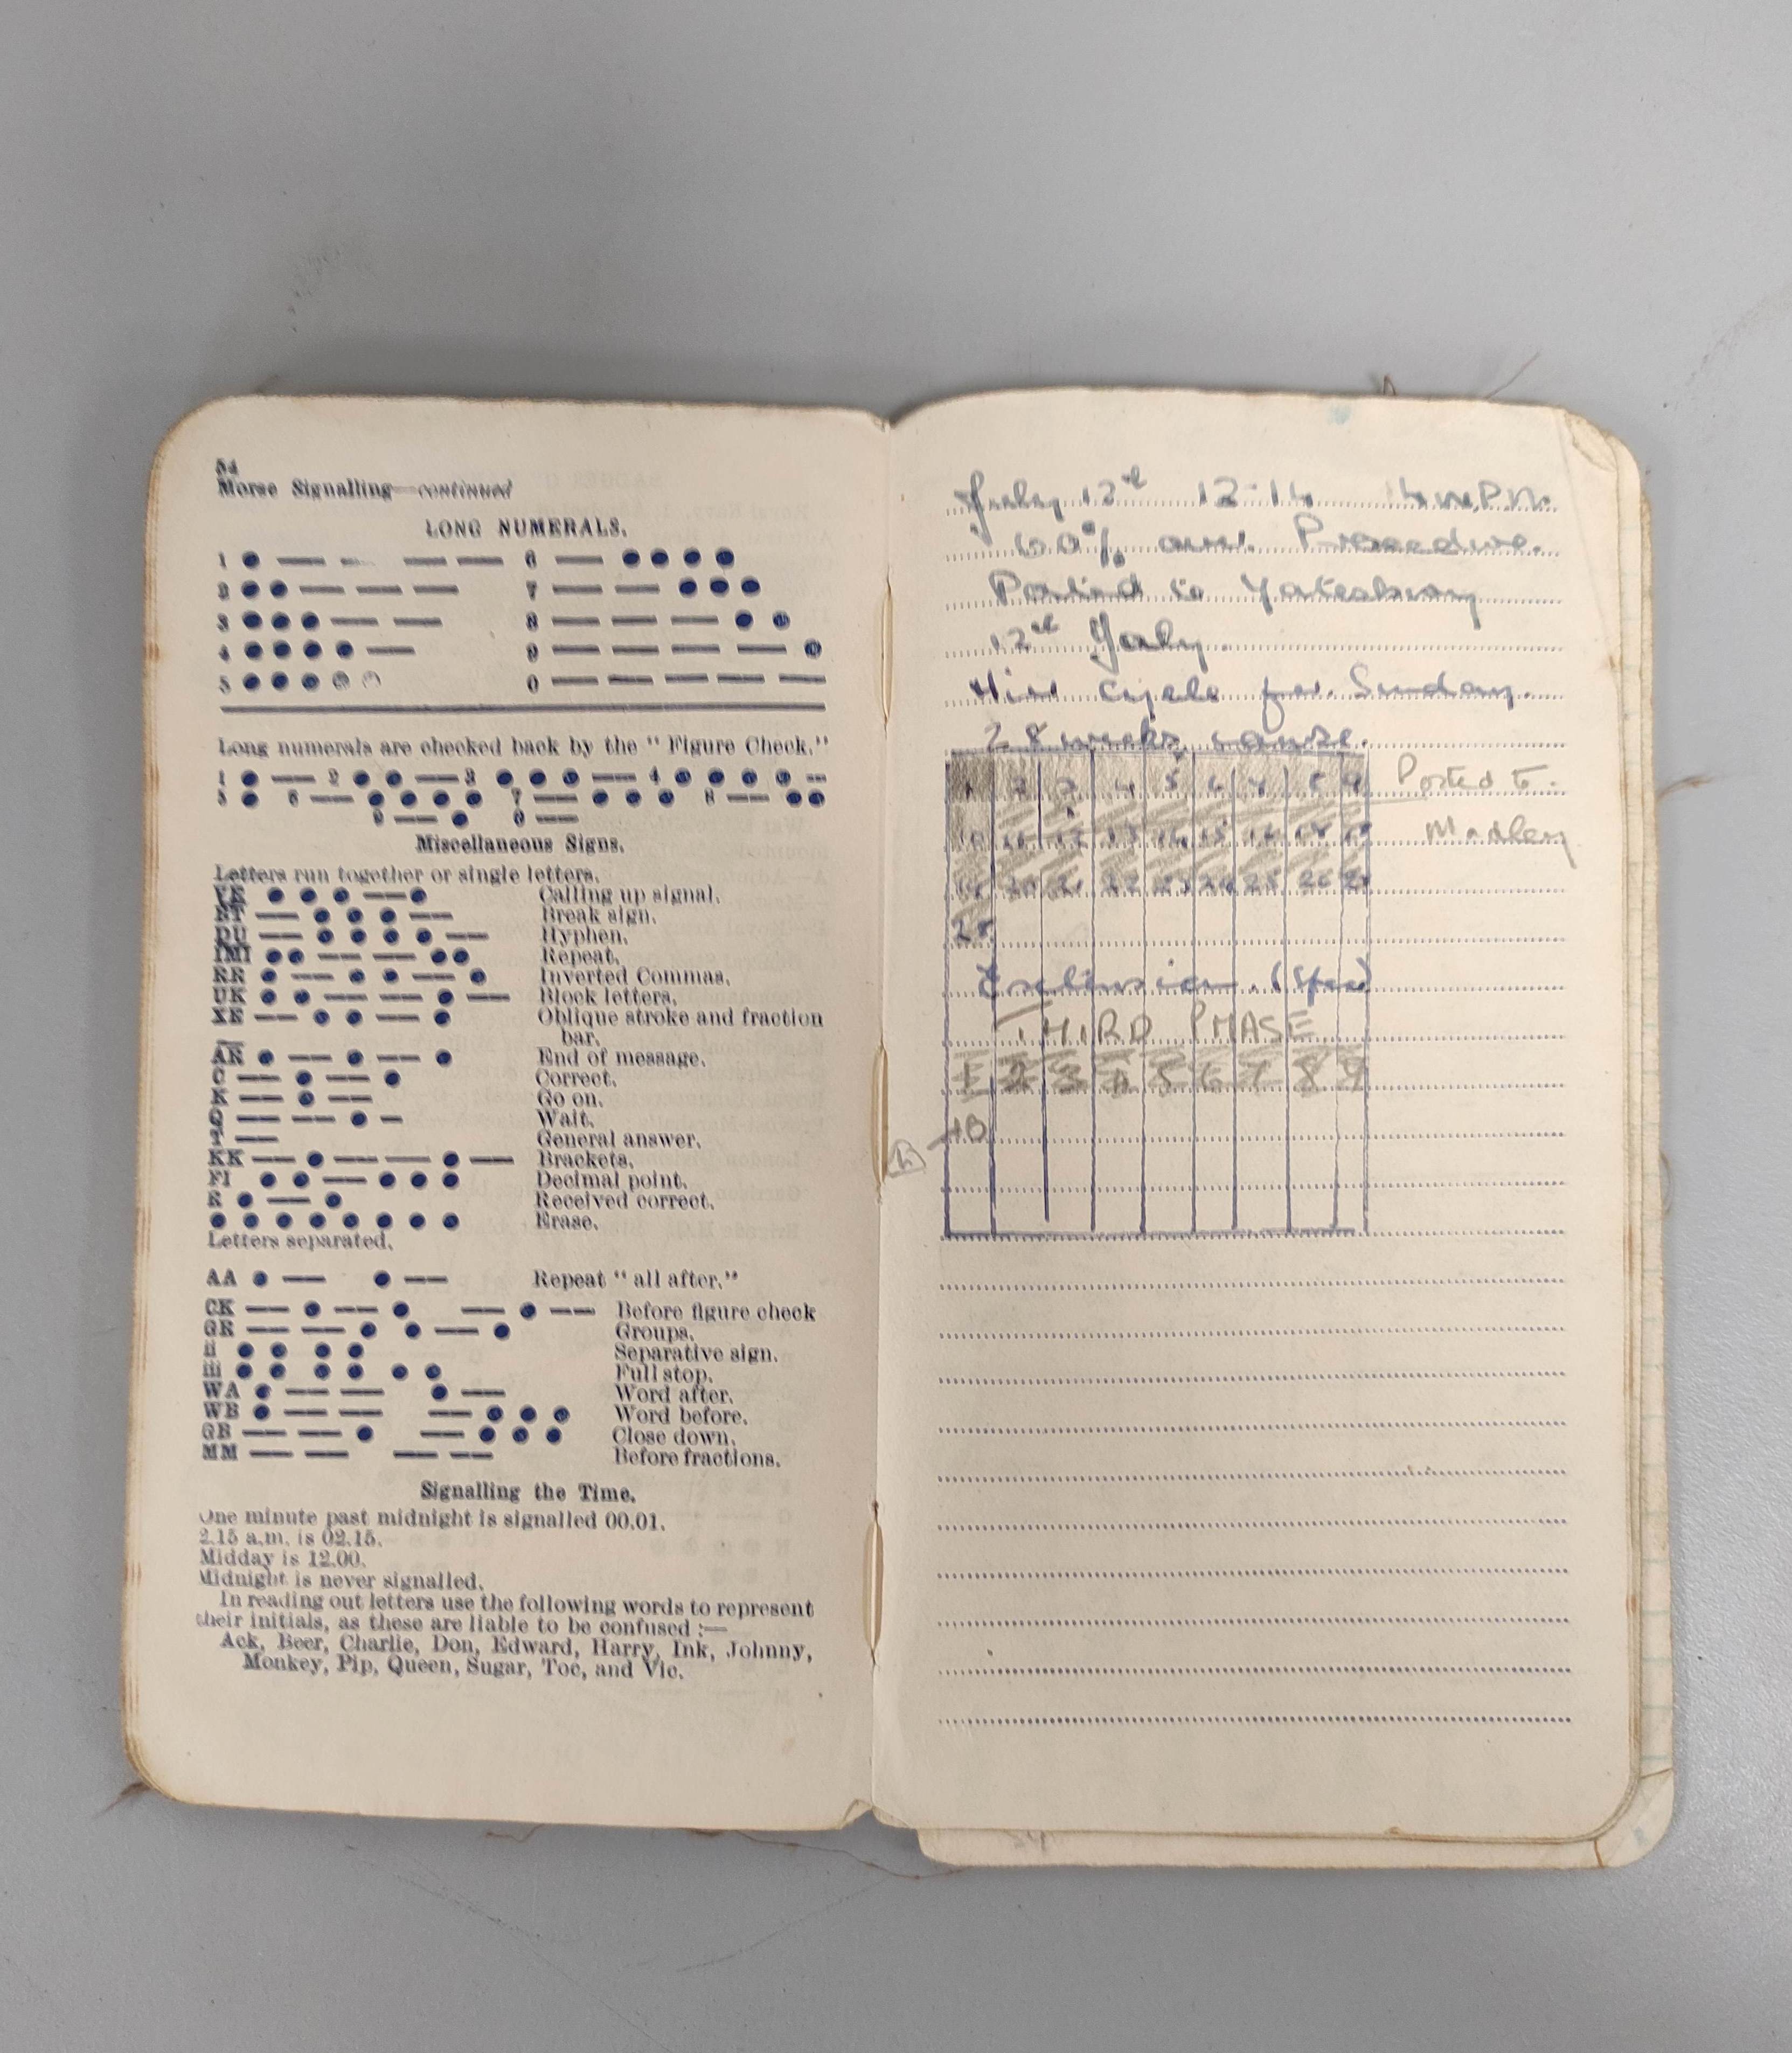 54
Morse Signalling—continued
LONG NUMERALS.
1 ● — — — — 6 — ● ● ● ●
2 ● ● — — — 7 — — ● ● ●
3 ● ● ● — — 8 — — — ● ●
4 ● ● ● ● — 9 — — — — ●
5 ● ● ● ● ● 0 — — — — —
Long numerals are checked back by the "Figure Check."
1 ● — 2 ● ● — 3 ● ● ● — 4 ● ● ● ● —
5 ● 6 — ● ● ● ● 7 — ● ● ● 8 — ● ●
9 — ● 0 —
Miscellaneous Signs.
Letters run together or single letters.
VE ● ● ● — ● Calling up signal.
BT — ● ● ● — Break sign.
DU — ● ● ● ● — Hyphen.
IMI ● ● — — ● ● Repeat.
RR ● — ● ● — ● Inverted Commas.
UK ● ● — — ● — Block letters.
XE — ● ● — ● Oblique stroke and fraction
bar.
AR ● — ● — ● End of message.
C — ● — ● Correct.
K — ● — Go on.
Q — — ● — Wait.
T — General answer.
KK — ● — — ● — Brackets.
FI ● ● — ● ● ● Decimal point.
R ● — ● Received correct.
● ● ● ● ● ● ● ● Erase.
Letters separated.
AA ● — ● — Repeat "all after."
CK — ● — ● — ● — Before figure check
GR — — ● ● — ● Groups.
ii ● ● ● ● Separative sign.
iii ● ● ● ● ● ● Full stop.
WA ● — — ● — Word after.
WB ● — — — ● ● ● Word before.
GB — — ● — ● ● ● Close down.
MM — — — — Before fractions.
Signalling the Time.
One minute past midnight is signalled 00.01.
2.15 a.m. is 02.15.
Midday is 12.00.
Midnight is never signalled.
In reading out letters use the following words to represent
their initials, as these are liable to be confused :—
Ack, Beer, Charlie, Don, Edward, Harry, Ink, Johnny,
Monkey, Pip, Queen, Sugar, Toc, and Vic.
July 12th 12-14 W.P.M.
60% Procedure.
Posted to Yatesbury
12th July.
Hire cycle for Sunday.
28 weeks course.
1 2 3 4 5 6 7 8 9 Posted to
Madley
28
THIRD PHASE
1 2 3 4 5 6 7 8 9
10